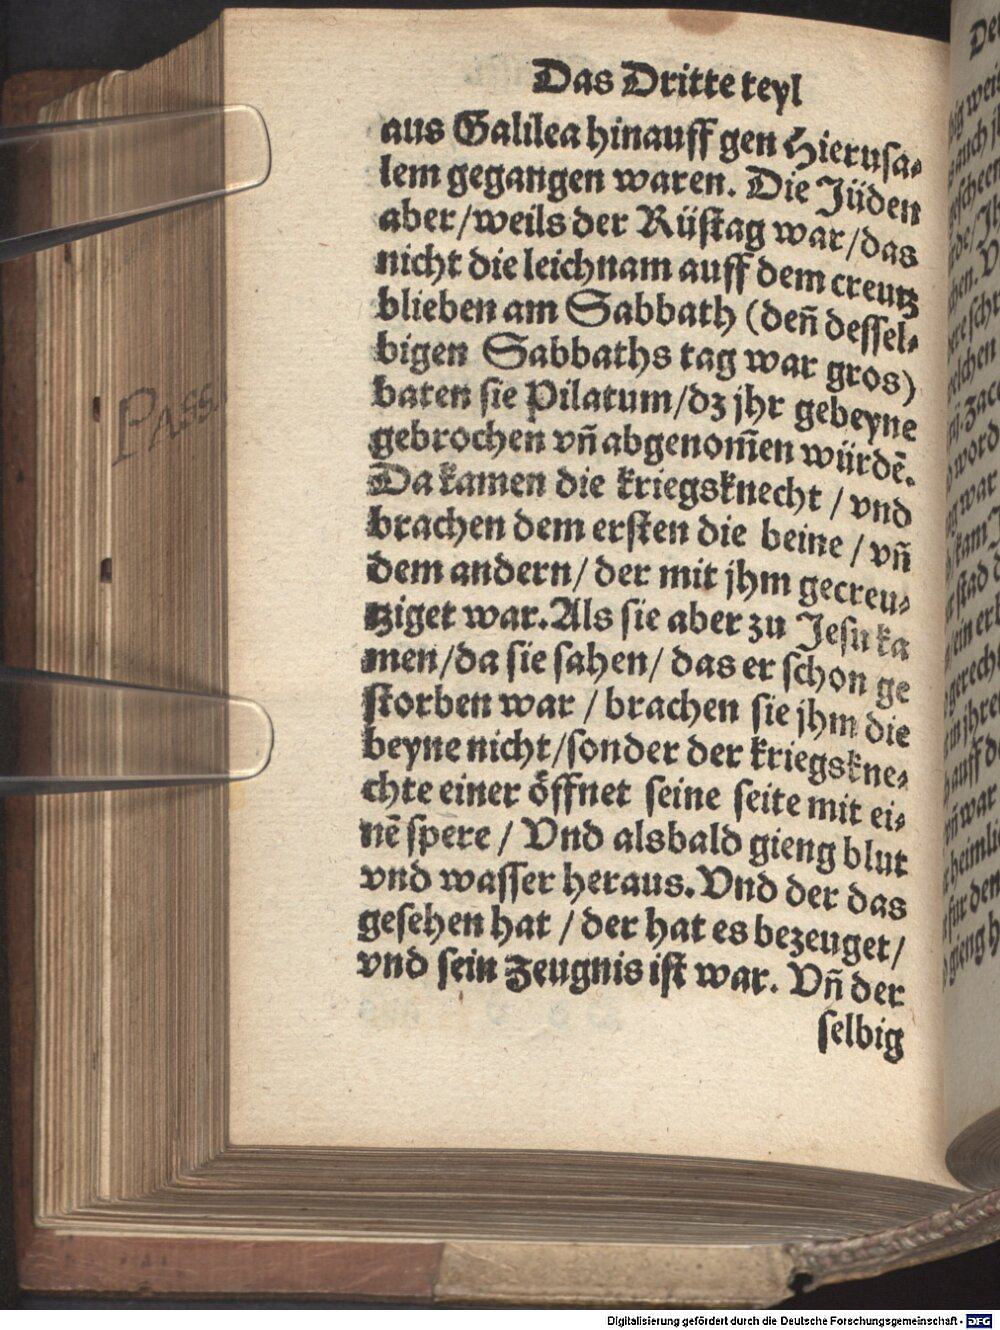 Das Dritte teyl
aus Galilea hinauff gen Hierusa⸗
lem gegangen waren. Die Jüden
aber/weils der Rüstag war/das
nicht die leichnam auff dem creutz
blieben am Sabbath (deñ dessel⸗
bigen Sabbaths tag war gros)
baten sie Pilatum/dz jhr gebeyne
gebrochen vñ abgenom̃en würdẽ.
Da kamen die kriegsknecht / vnd
brachen dem ersten die beine / vñ
dem andern/ der mit jhm gecreu⸗
tziget war. Als sie aber zu Jesu ka
men/da sie sahen/ das er schon ge
storben war / brachen sie jhm die
beyne nicht/sonder der kriegskne⸗
chte einer öffnet seine seite mit ei⸗
nẽ spere / Vnd alsbald gieng blut
vnd wasser heraus. Vnd der das
gesehen hat / der hat es bezeuget/
vnd sein zeugnis ist war. Vñ der
selbig
PASS.
Digitalisierung gefördert durch die Deutsche Forschungsgemeinschaft - DFG